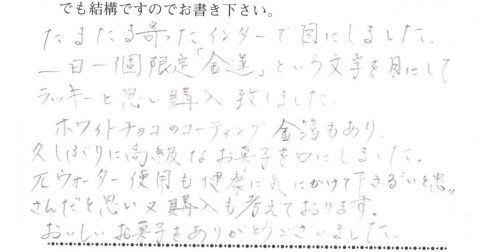 でも結構ですのでお書き下さい。
たまたま寄ったインターで目にしました。
一日一個限定「金蓮」という文字を目にして
ラッキーと思い購入致しました。
ホワイトチョコのコーティング 金箔もあり、
久しぶりに高級なお菓子を口にしました。
元ウォーター使用も健康に気にかけて下さる
さんだと思い又購入も考えております。
おいしいお菓子をありがとうございました。